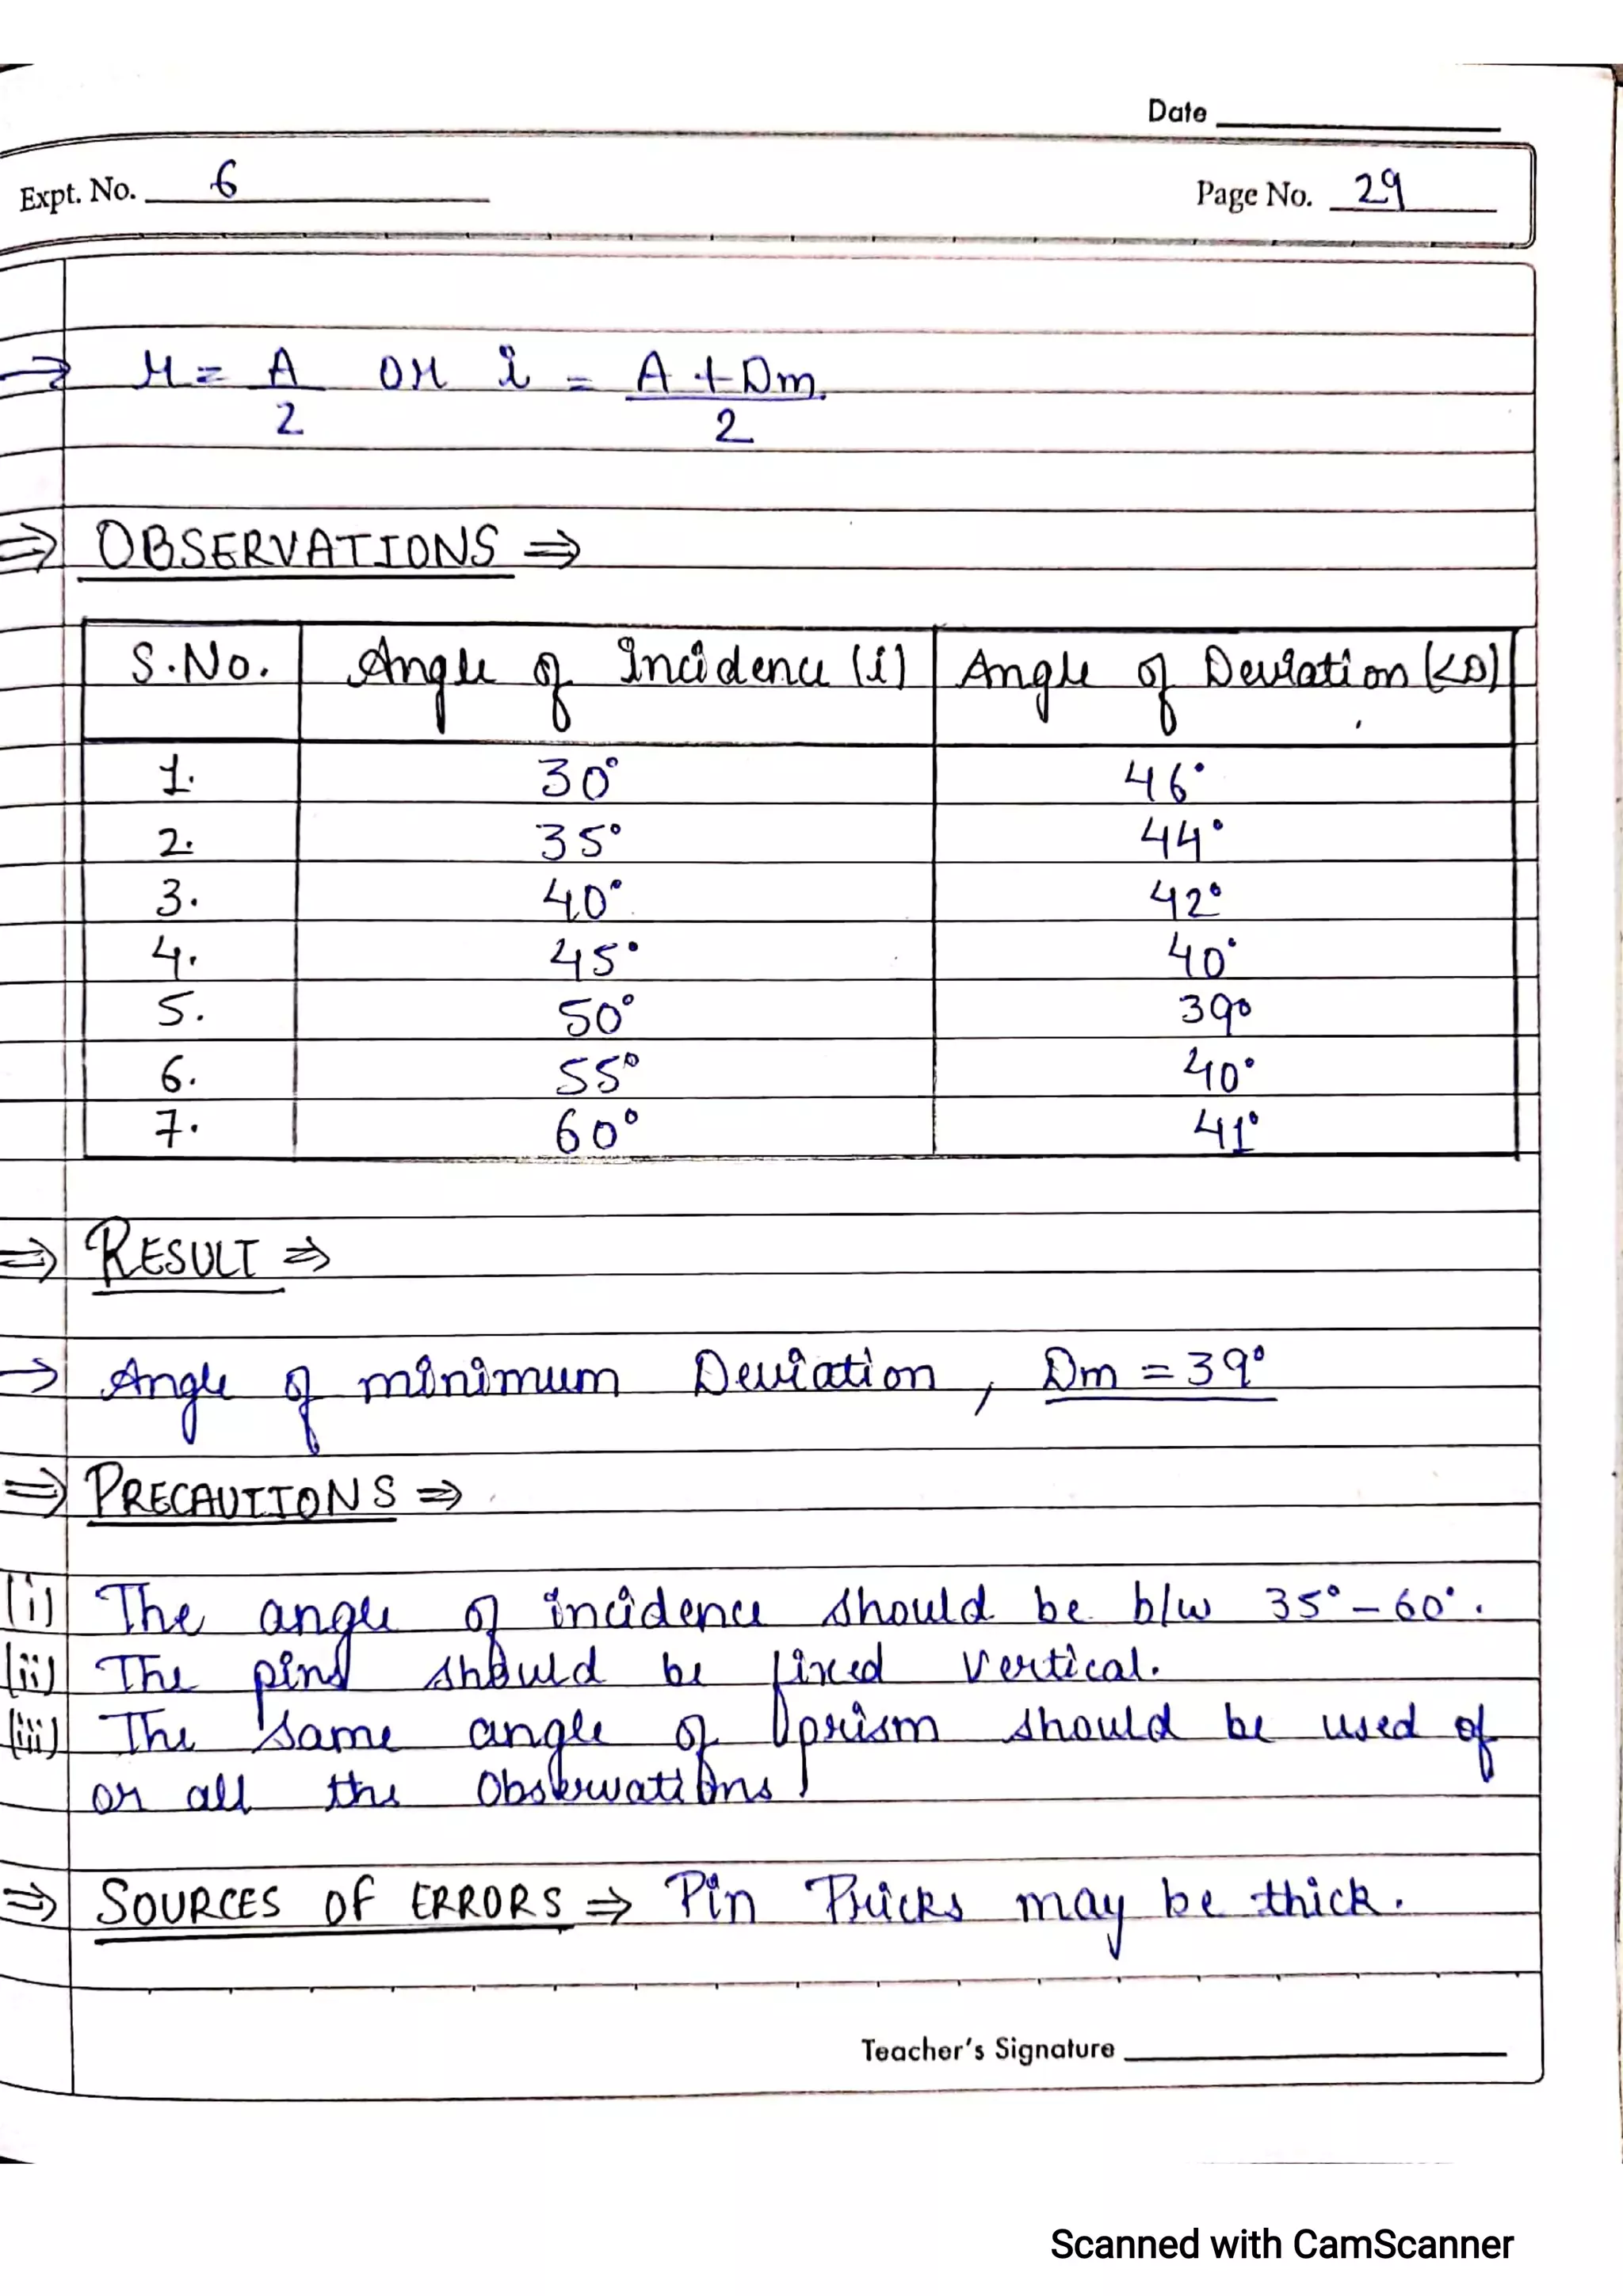 Date
Expt. No. 6
Page No. 29
⇒ r = A/2 or i = A + Dm/2
⇒ OBSERVATIONS ⇒
S.No. Angle of Incidence (i) Angle of Deviation (<D)
1. 30° 46°
2. 35° 44°
3. 40° 42°
4. 45° 40°
5. 50° 39°
6. 55° 40°
7. 60° 41°
⇒ RESULT ⇒
→ Angle of minimum Deviation, Dm = 39°
⇒ PRECAUTIONS ⇒
(i) The angle of incidence should be b/w 35° - 60°.
(ii) The pins should be fixed vertical.
(iii) The same angle of prism should be used of
or all the Observations
⇒ SOURCES OF ERRORS ⇒ Pin Pricks may be thick.
Teacher's Signature
Scanned with CamScanner